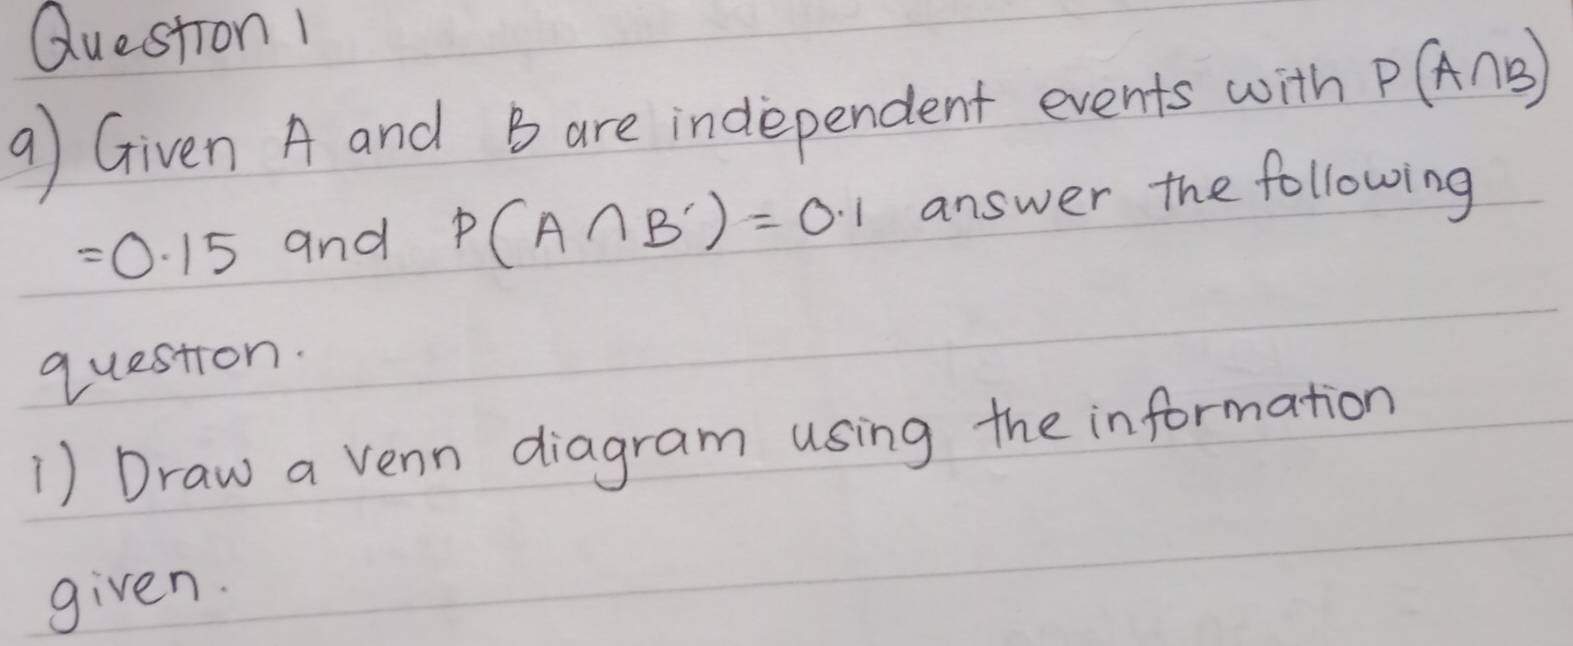 Question 1
a) Given A and B are independent events with P(A∩B)
=0.15 and P(A∩B')=0.1 answer the following
question.
i) Draw a venn diagram using the information
given.